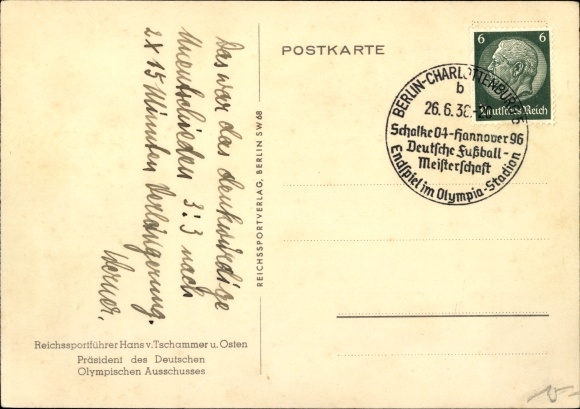 Das war das denkwürdige
Unentschieden 3:3 nach
2x15 Minuten Verlängerung.
Werner.
Reichssportführer Hans v. Tschammer u. Osten
Präsident des Deutschen
Olympischen Ausschusses
REICHSSPORTVERLAG, BERLIN SW 68
POSTKARTE
6 6
Deutsches Reich
BERLIN-CHARLOTTENBURG
b
26.6.38.
Schalke 04-Hannover 96
Deutsche Fußball-
Meisterschaft
Endspiel im Olympia-Stadion